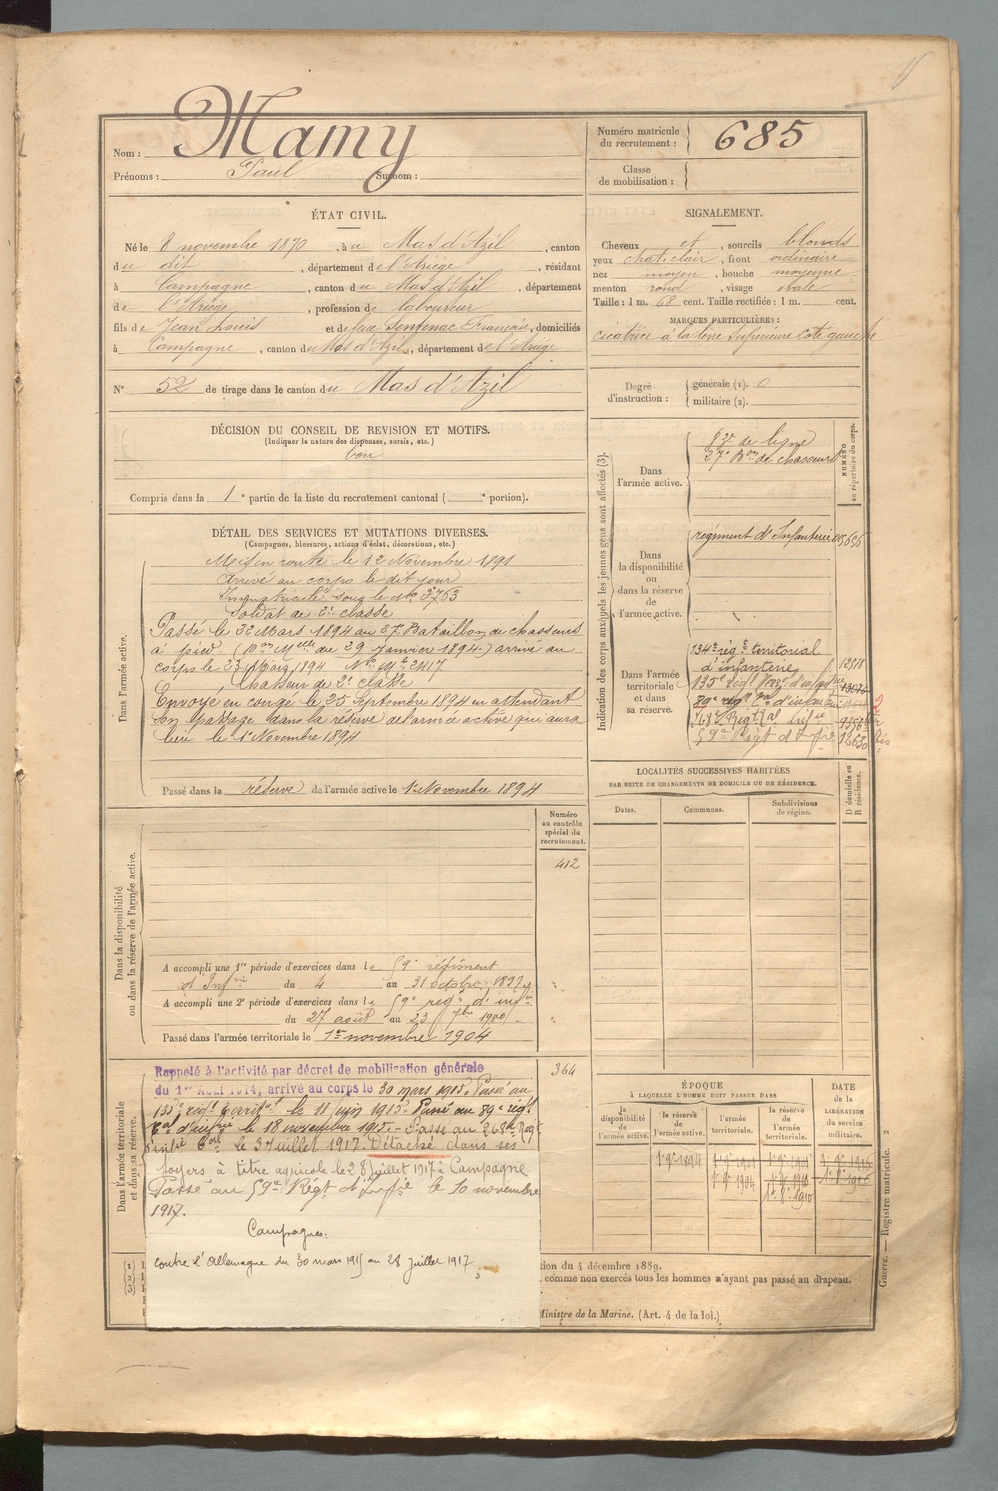 Nom : Mamy
Prénoms : Paul Surnom :
Numéro matricule du recrutement : 685
Classe de mobilisation :
ÉTAT CIVIL.
Né le 8 novembre 1870, à u Mas d'Azil, canton
du dit, département de l'Ariège, résidant
à Campagne, canton du Mas d'Azil, département
de l'Ariège, profession de laboureur
fils de Jean Louis et de feue Sentenac Françoise, domiciliés
à Campagne, canton du Mas d'Azil, département de l'Ariège
N° 52 de tirage dans le canton du Mas d'Azil
SIGNALEMENT.
Cheveux et, sourcils blonds
yeux chat. clair, front ordinaire
nez moyen, bouche moyenne
menton rond, visage ovale
Taille : 1 m. 68 cent. Taille rectifiée : 1 m. cent.
MARQUES PARTICULIÈRES :
cicatrice à la lèvre supérieure coté gauche
Degré d'instruction : générale (1). 0
militaire (2).
DÉCISION DU CONSEIL DE REVISION ET MOTIFS.
(Indiquer la nature des dispenses, sursis, etc.)
bon
Compris dans la 1e partie de la liste du recrutement cantonal ( e portion).
DÉTAIL DES SERVICES ET MUTATIONS DIVERSES.
(Campagnes, blessures, actions d'éclat, décorations, etc.)
Dans l'armée active.
Mis en route le 12 Novembre 1891
Arrivé au corps le dit jour
Immatriculé sous le No 3763
Soldat de 2e classe
Passé le 22 Mars 1894 au 27e Bataillon de chasseurs
à pied (Don Mlle du 29 Janvier 1894) arrivé au
corps le 23 Mars 1894. No Mle 2417
Chasseur de 2e classe
Envoyé en congé le 25 Septembre 1894 en attendant
son passage dans la réserve de l'armée active qui aura
lieu le 1r Novembre 1894
Passé dans la réserve de l'armée active le 1r Novembre 1894
Indication des corps auxquels les jeunes gens sont affectés (3).
NUMÉRO au répertoire du corps.
Dans l'armée active.
83e de ligne
27e Bon de chasseurs
Dans la disponibilité ou dans la réserve de l'armée active.
régiment d'Infanterie
Dans l'armée territoriale et dans sa réserve.
134e régt territorial
d'infanterie
135e régt d'infie
89e régt d'infie
268e Régt Inf
59e Régt d'Infie
LOCALITÉS SUCCESSIVES HABITÉES
PAR SUITE DE CHANGEMENTS DE DOMICILE OU DE RÉSIDENCE.
Dates. Communes. Subdivisions de région. D domicile ou R résidence.
Dans la disponibilité ou dans la réserve de l'armée active.
Numéro au contrôle spécial du recrutement.
412
A accompli une 1re période d'exercices dans le 59e régiment
d'Infrie du 4 au 31 octobre 1897
A accompli une 2e période d'exercices dans le 59e régt d'infie
du 27 août au 23 7bre 1900
Passé dans l'armée territoriale le 1er novembre 1904
Dans l'armée territoriale et dans sa réserve.
364
Rappelé à l'activité par décret de mobilisation générale
du 1er Août 1914, arrivé au corps le 30 mars 1915. Passé au
135e régt territl le 11 juin 1915. Passé au 89e régt
Tal d'infie le 18 novembre 1915. Passé au 268e Régt
d'infie Tal le 3 juillet 1917. Détaché dans ses
foyers à titre agricole le 28 juillet 1917 à Campagne
Passé au 59e Régt d'Infie le 10 novembre
1917.
Campagnes.
contre l'Allemagne du 30 mars 1915 au 28 juillet 1917
ÉPOQUE
À LAQUELLE L'HOMME DOIT PASSER DANS
la disponibilité de l'armée active. la réserve de l'armée active. l'armée territoriale. la réserve de l'armée territoriale.
DATE de la LIBÉRATION du service militaire.
(1)
(2)
(3)
tion du 4 décembre 1889.
comme non exercés tous les hommes n'ayant pas passé au drapeau.
Ministre de la Marine. (Art. 4 de la loi.)
Guerre. — Registre matricule. 2